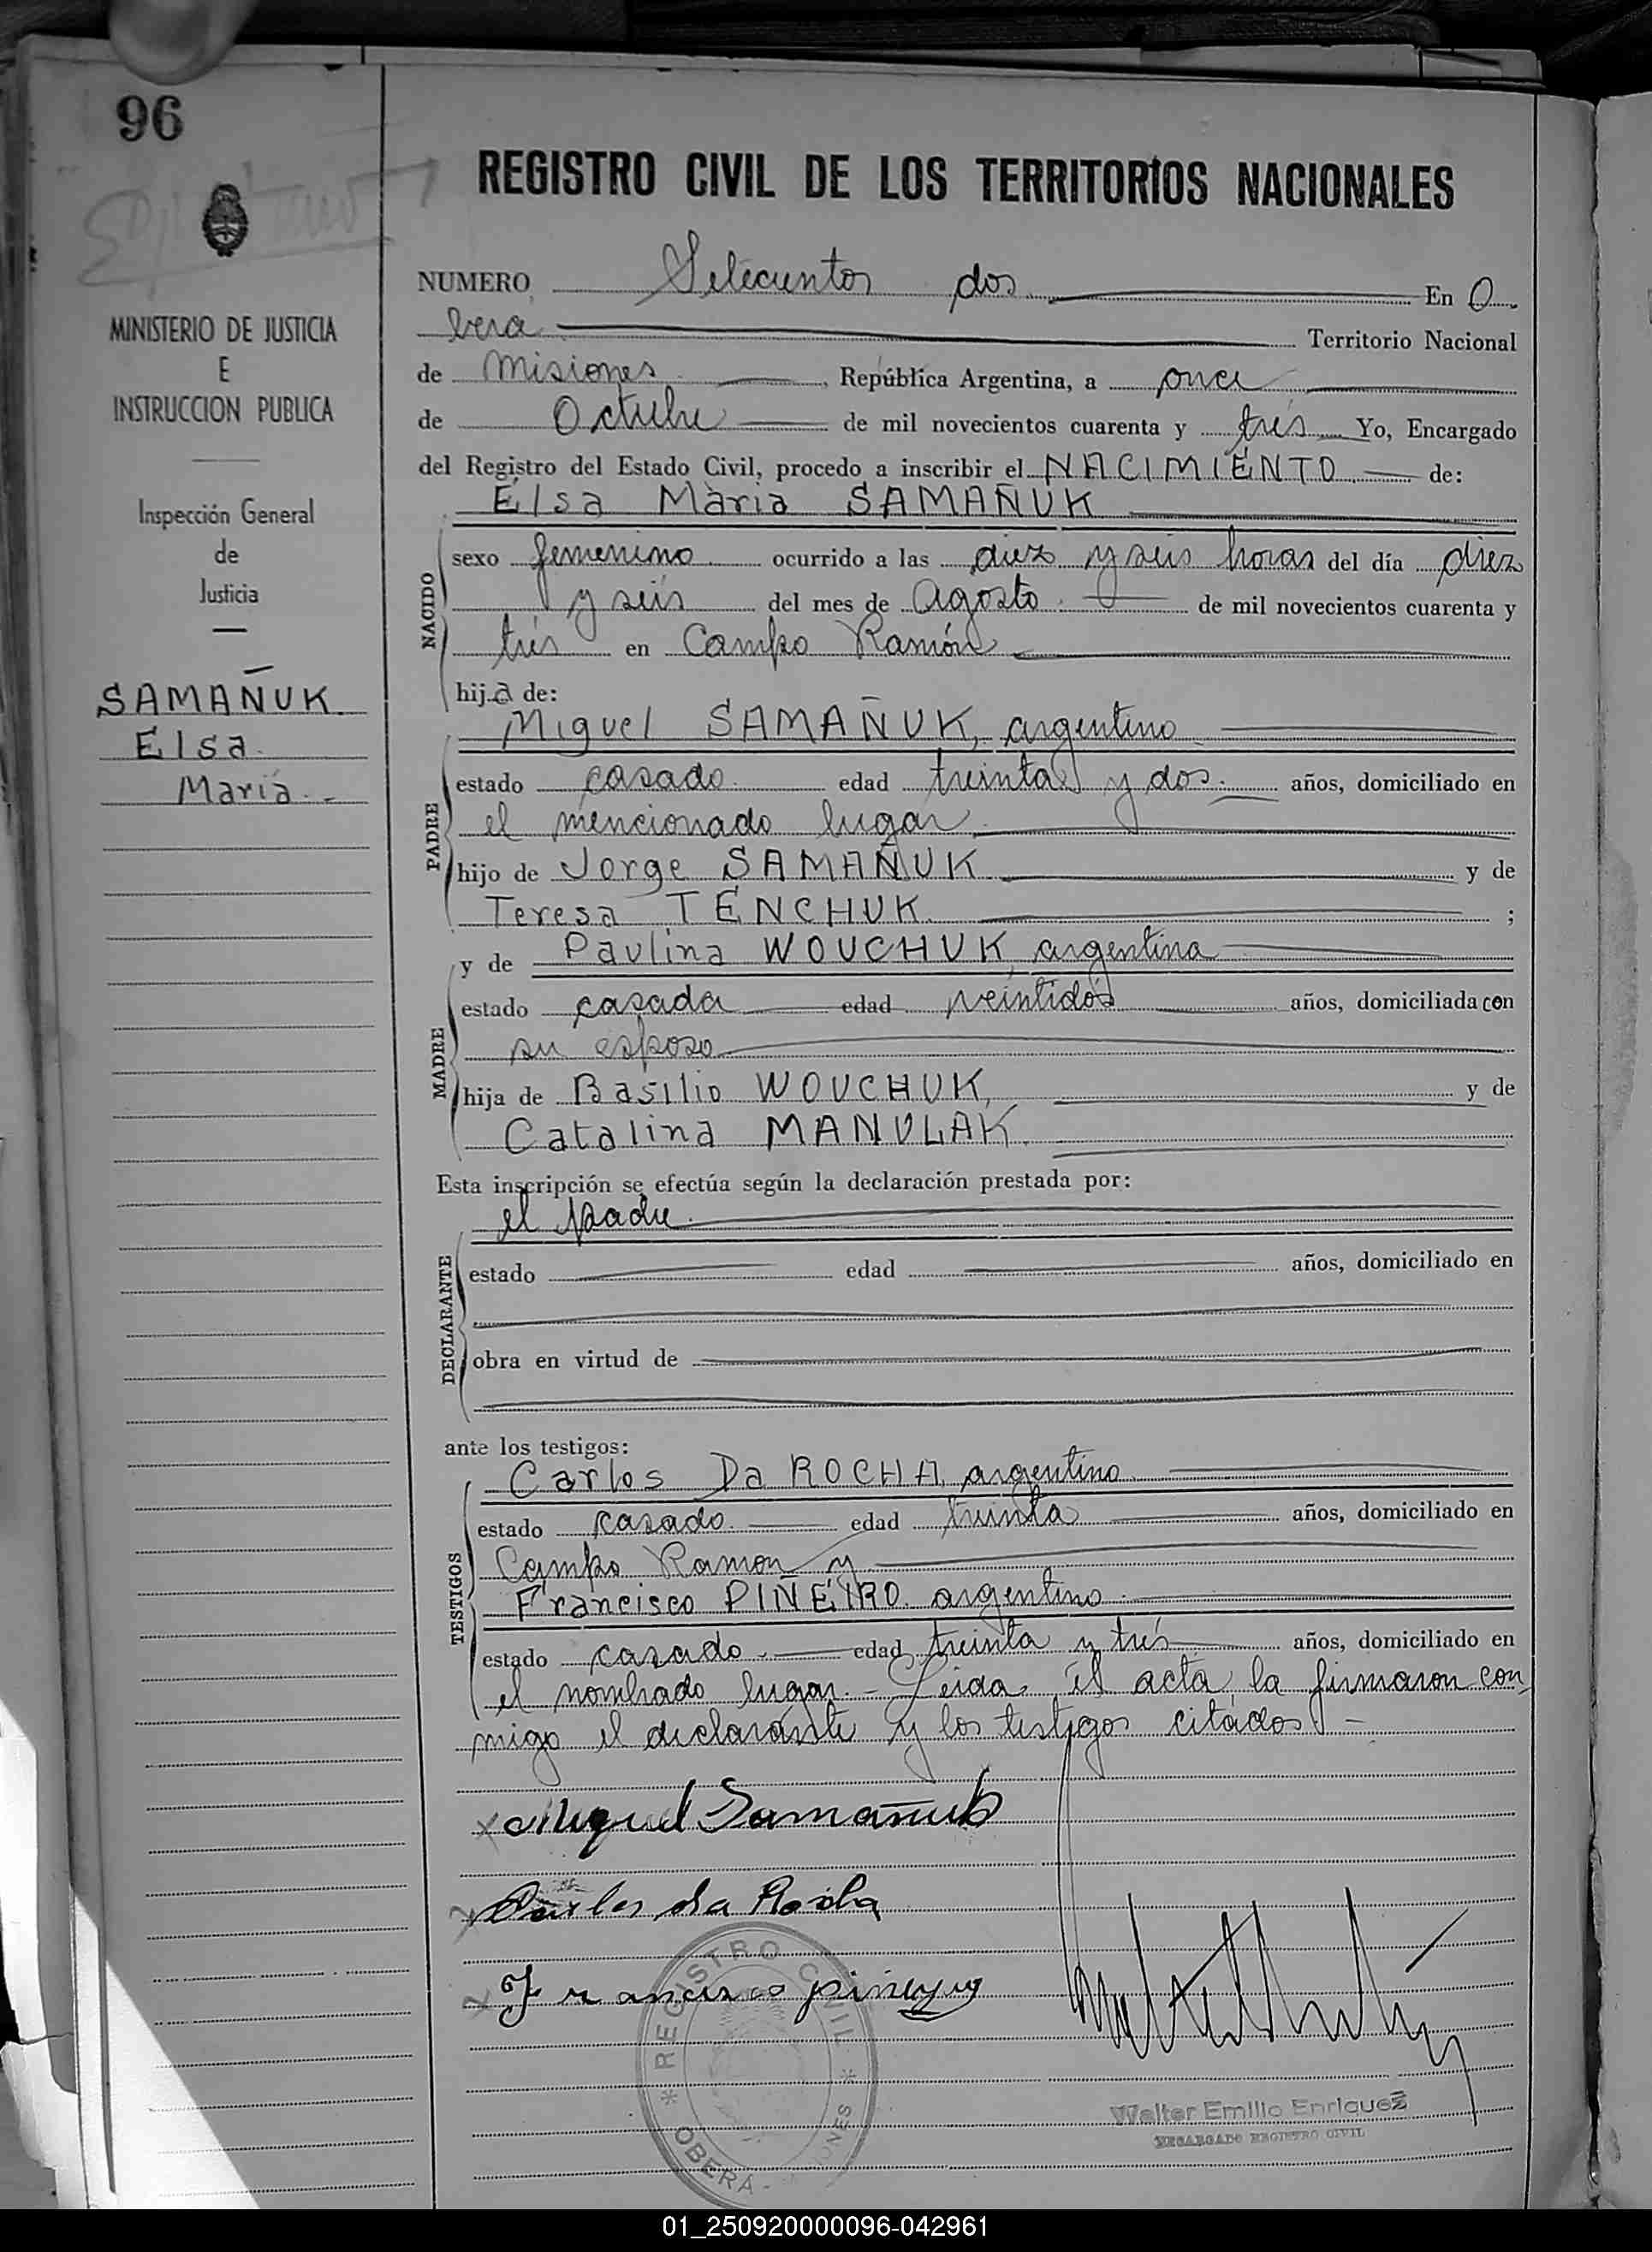 96
REGISTRO CIVIL DE LOS TERRITORIOS NACIONALES
MINISTERIO DE JUSTICIA
E
INSTRUCCION PUBLICA
Inspección General
de
Justicia
SAMAÑUK
Elsa
Maria.-
NUMERO Setecientos dos En O
berá Territorio Nacional
de Misiones, República Argentina, a once
de Octubre de mil novecientos cuarenta y trés Yo, Encargado
del Registro del Estado Civil, procedo a inscribir el NACIMIENTO de:
Elsa Maria SAMAÑUK
NACIDO
sexo femenino ocurrido a las diez y seis horas del día diez
y seis del mes de Agosto de mil novecientos cuarenta y
trés en Campo Ramón
hija de:
Miguel SAMAÑUK, argentino
PADRE
estado casado edad treinta y dos años, domiciliado en
el mencionado lugar
hijo de Jorge SAMAÑUK y de
Teresa TENCHUK ;
y de Paulina WOUCHUK, argentina
MADRE
estado casada edad veintidos años, domiciliada con
su esposo
hija de Basilio WOUCHUK, y de
Catalina MANULAK.
Esta inscripción se efectúa según la declaración prestada por:
el padre.
DECLARANTE
estado edad años, domiciliado en
obra en virtud de
ante los testigos:
Carlos Da ROCHA, argentino
TESTIGOS
estado casado edad treinta años, domiciliado en
Campo Ramon y
Francisco PIÑEIRO argentino
estado casado edad treinta y trés años, domiciliado en
el nombrado lugar.- Leida el acta, la firmaron con
migo el declarante y los testigos citados.-
Miguel Samañuk
Carlos da Rocha
Francisco pineyro
REGISTRO CIVIL * OBERÁ - MISIONES *
Walter Emilio Enriquez
ENCARGADO REGISTRO CIVIL
01_250920000096-042961